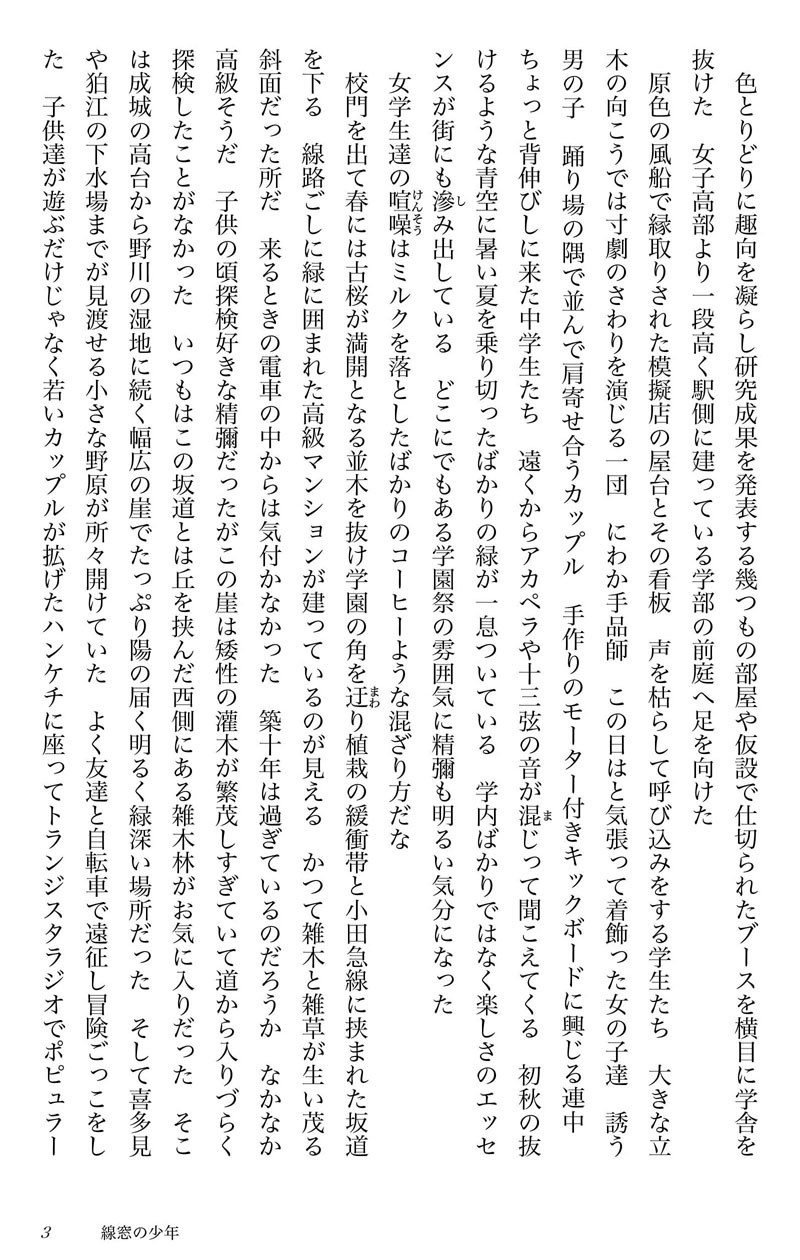 色とりどりに趣向を凝らし研究成果を発表する幾つもの部屋や仮設で仕切られたブースを横目に学舎を
抜けた　女子高部より一段高く駅側に建っている学部の前庭へ足を向けた
　原色の風船で縁取りされた模擬店の屋台とその看板　声を枯らして呼び込みをする学生たち　大きな立
木の向こうでは寸劇のさわりを演じる一団　にわか手品師　この日はと気張って着飾った女の子達　誘う
男の子　踊り場の隅で並んで肩寄せ合うカップル　手作りのモーター付きキックボードに興じる連中
ちょっと背伸びしに来た中学生たち　遠くからアカペラや十三弦の音が混じって聞こえてくる　初秋の抜
けるような青空に暑い夏を乗り切ったばかりの緑が一息ついている　学内ばかりではなく楽しさのエッセ
ンスが街にも滲み出している　どこにでもある学園祭の雰囲気に精彌も明るい気分になった
　女学生達の喧噪はミルクを落としたばかりのコーヒーような混ざり方だな
　校門を出て春には古桜が満開となる並木を抜け学園の角を迂り植栽の緩衝帯と小田急線に挟まれた坂道
を下る　線路ごしに緑に囲まれた高級マンションが建っているのが見える　かつて雑木と雑草が生い茂る
斜面だった所だ　来るときの電車の中からは気付かなかった　築十年は過ぎているのだろうか　なかなか
高級そうだ　子供の頃探検好きな精彌だったがこの崖は矮性の灌木が繁茂しすぎていて道から入りづらく
探検したことがなかった　いつもはこの坂道とは丘を挟んだ西側にある雑木林がお気に入りだった　そこ
は成城の高台から野川の湿地に続く幅広の崖でたっぷり陽の届く明るく緑深い場所だった　そして喜多見
や狛江の下水場までが見渡せる小さな野原が所々開けていた　よく友達と自転車で遠征し冒険ごっこをし
た　子供達が遊ぶだけじゃなく若いカップルが拡げたハンケチに座ってトランジスタラジオでポピュラー
3　線窓の少年